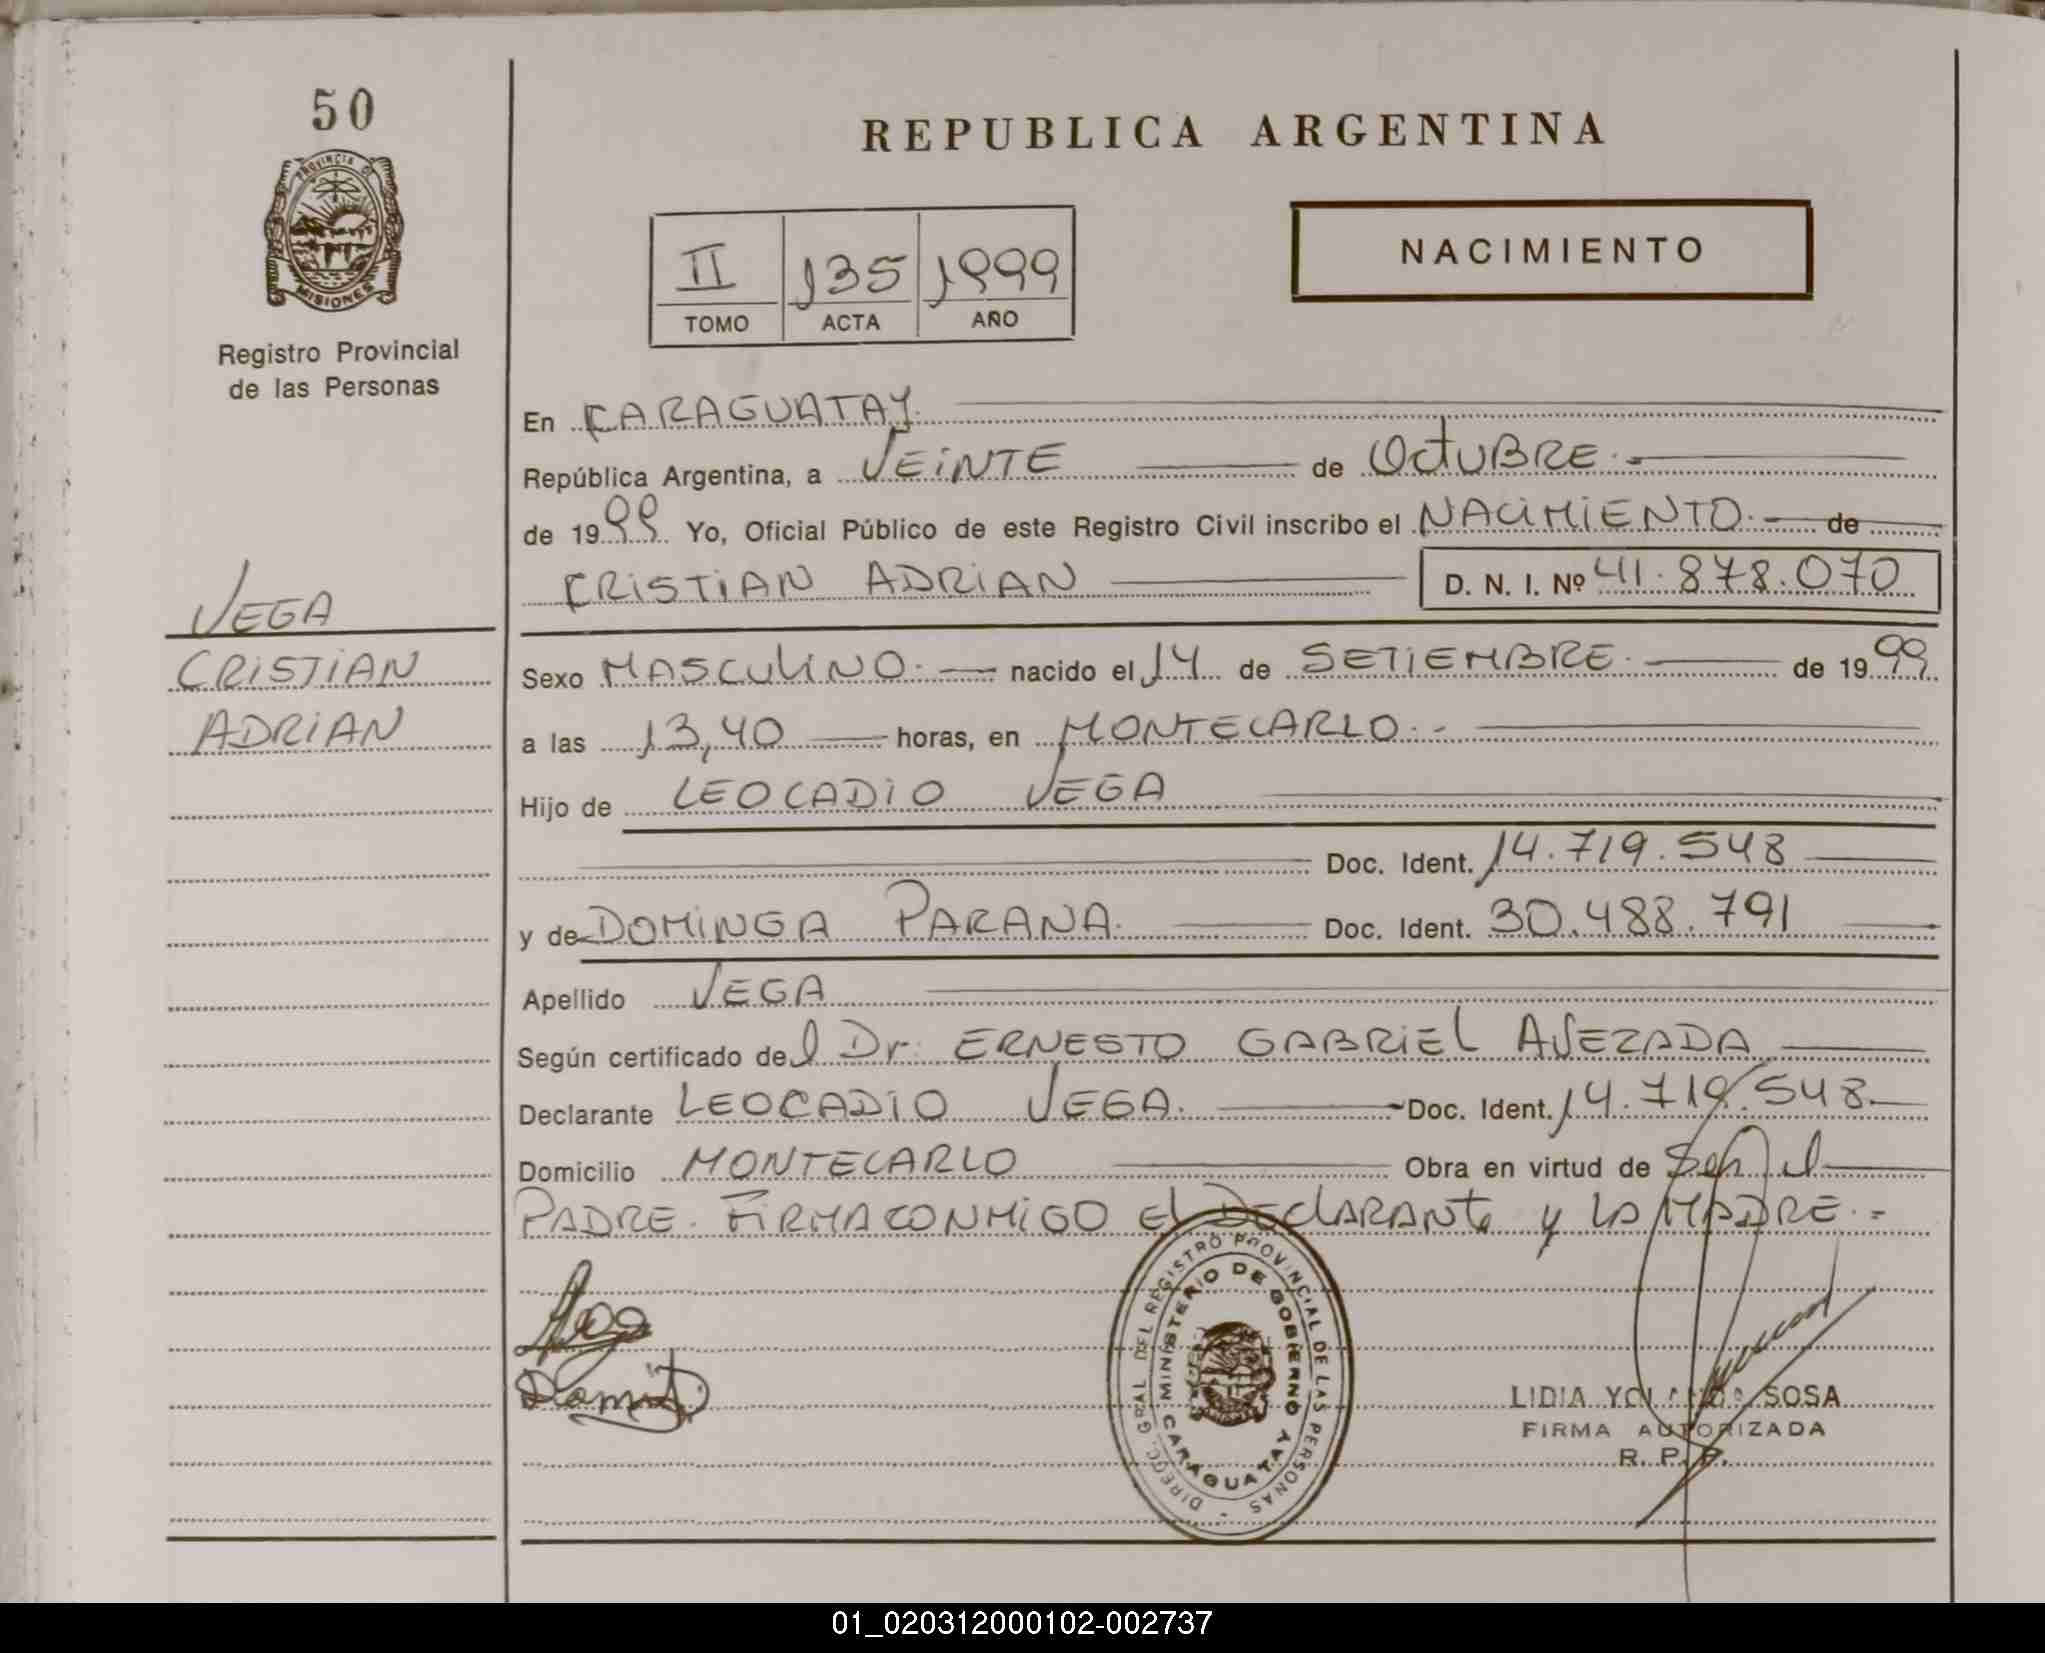 50
PROVINCIA DE
MISIONES
Registro Provincial
de las Personas
VEGA
CRISTIAN
ADRIAN
REPUBLICA ARGENTINA
II 135 1999
TOMO ACTA AÑO
NACIMIENTO
En CARAGUATAY.
República Argentina, a VEINTE de OCTUBRE.-
de 1999 Yo, Oficial Público de este Registro Civil inscribo el NACIMIENTO.- de
CRISTIAN ADRIAN D. N. I. Nº 41.878.070
Sexo MASCULINO.- nacido el 14 de SETIEMBRE. de 1999
a las 13,40 horas, en MONTECARLO.-
Hijo de LEOCADIO VEGA
Doc. Ident. 14.719.548
y de DOMINGA PARANA. Doc. Ident. 30.488.791
Apellido VEGA
Según certificado del Dr. ERNESTO GABRIEL AVEZADA
Declarante LEOCADIO VEGA. Doc. Ident. 14.719.548.
Domicilio MONTECARLO Obra en virtud de Ser el
PADRE. FIRMA CONMIGO El DEClARANTe y LA MADRE.-
DIRECC. GRAL DEL REGISTRO PROVINCIAL DE LAS PERSONAS -
MINISTERIO DE GOBIERNO
CARAGUATAY
LIDIA YOLANDA SOSA
FIRMA AUTORIZADA
R. P. P.
01_020312000102-002737